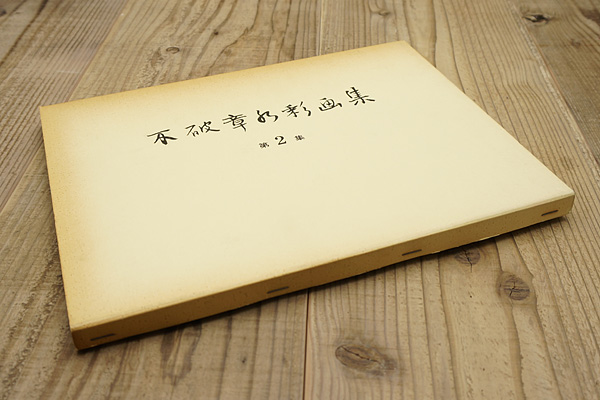 不破章水彩画集
第2集